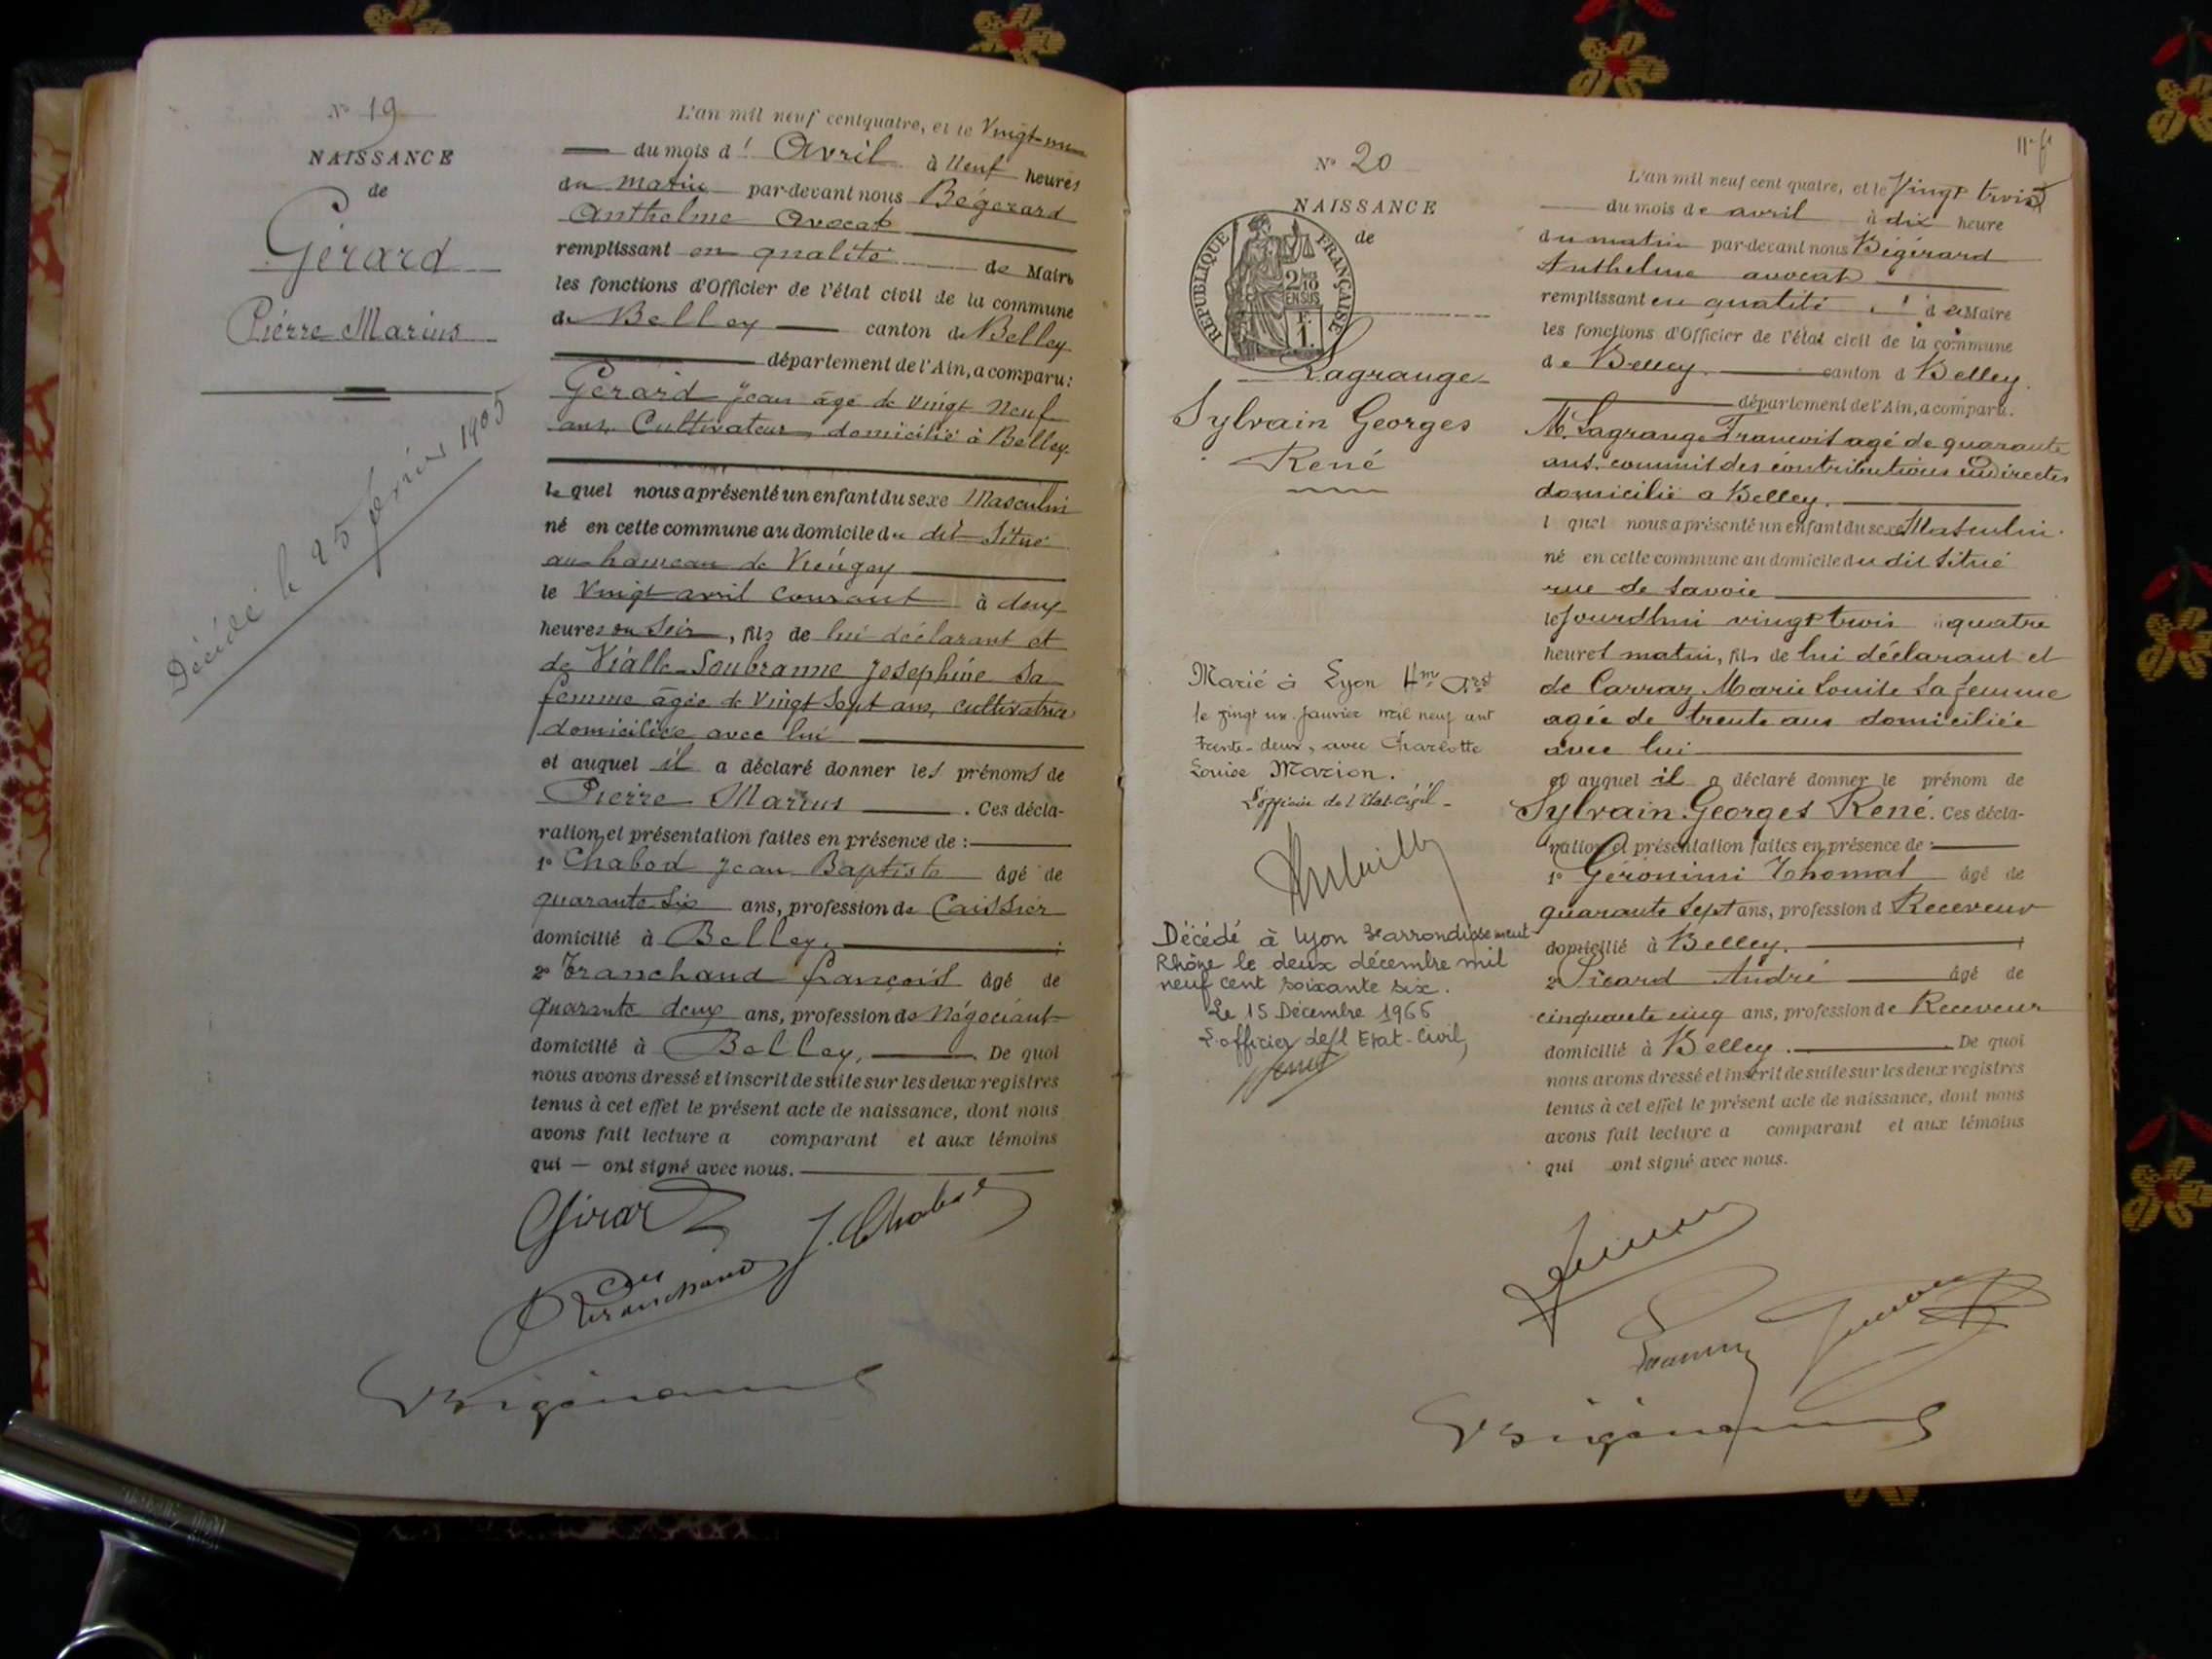 N° 19
NAISSANCE
de
Gérard
Pierre Marius
Décédé le 25 février 1905
L'an mil neuf cent quatre, et le Vingt-un
du mois d' Avril à Neuf heures
du matin par-devant nous Bégérard
Anthelme Avocat
remplissant en qualité de Maire
les fonctions d'Officier de l'état civil de la commune
de Belley canton de Belley
département de l'Ain, a comparu:
Gérard Jean âgé de vingt neuf
ans, Cultivateur, domicilié à Belley.
le quel nous a présenté un enfant du sexe Masculin
né en cette commune au domicile du dit Situé
au hameau de
le Vingt avril courant à deux
heures du Soir, fils de lui déclarant et
de Vialle-Soubranne Joséphine Sa
femme âgée de Vingt Sept ans, cultivatrice
domiciliée avec lui
et auquel il a déclaré donner les prénoms de
Pierre Marius. Ces décla-
ration et présentation faites en présence de :
1° Chabod Jean Baptiste âgé de
quarante Six ans, profession de Caissier
domicilié à Belley, ;
2° Tranchand françois âgé de
quarante deux ans, profession de Négociant
domicilié à Belley, . De quoi
nous avons dressé et inscrit de suite sur les deux registres
tenus à cet effet le présent acte de naissance, dont nous
avons fait lecture a comparant et aux témoins
qui — ont signé avec nous.
Girard
J. Chabod
Tranchand
Bégérard
N° 20
NAISSANCE
de
REPUBLIQUE FRANÇAISE
2/10
EN SUS
1 F.
Lagrange
Sylvain Georges
René
Marié à Lyon 4me Arst
le vingt un janvier mil neuf cent
trente-deux, avec Charlotte
Louise Marion.
L'officier de l'Etat-Civil
Décédé à Lyon 3e arrondissement
Rhône le deux décembre mil
neuf cent soixante six.
Le 15 Décembre 1966
L'officier de l'Etat-Civil,
11e ft
L'an mil neuf cent quatre, et le Vingt trois
du mois de avril à dix heure
du matin par-devant nous Bégérard
Anthelme avocat
remplissant en qualité de Maire
les fonctions d'Officier de l'état civil de la commune
de Belley. canton d Belley.
département de l'Ain, a comparu.
M. Lagrange Francois agé de quarante
ans. commis des contributions indirectes
domicilié a Belley.
l quel nous a présenté un enfant du sexe Masculin.
né en cette commune au domicile du dit situé
rue de Savoie
le jourdhui vingt trois à quatre
heures matin, fils de lui déclarant et
de Carraz Marie Louise sa femme
agée de trente ans domiciliée
avec lui
et auquel il a déclaré donner le prénom de
Sylvain Georges René. Ces décla-
ration et présentation faites en présence de :
1° Géronimi Thomas âgé de
quarante Sept ans, profession d Receveur
domicilié à Belley. ;
2° Picard André âgé de
cinquante cinq ans, profession de Receveur
domicilié à Belley. De quoi
nous avons dressé et inscrit de suite sur les deux registres
tenus à cet effet le présent acte de naissance, dont nous
avons fait lecture a comparant et aux témoins
qui ont signé avec nous.
Bégérard